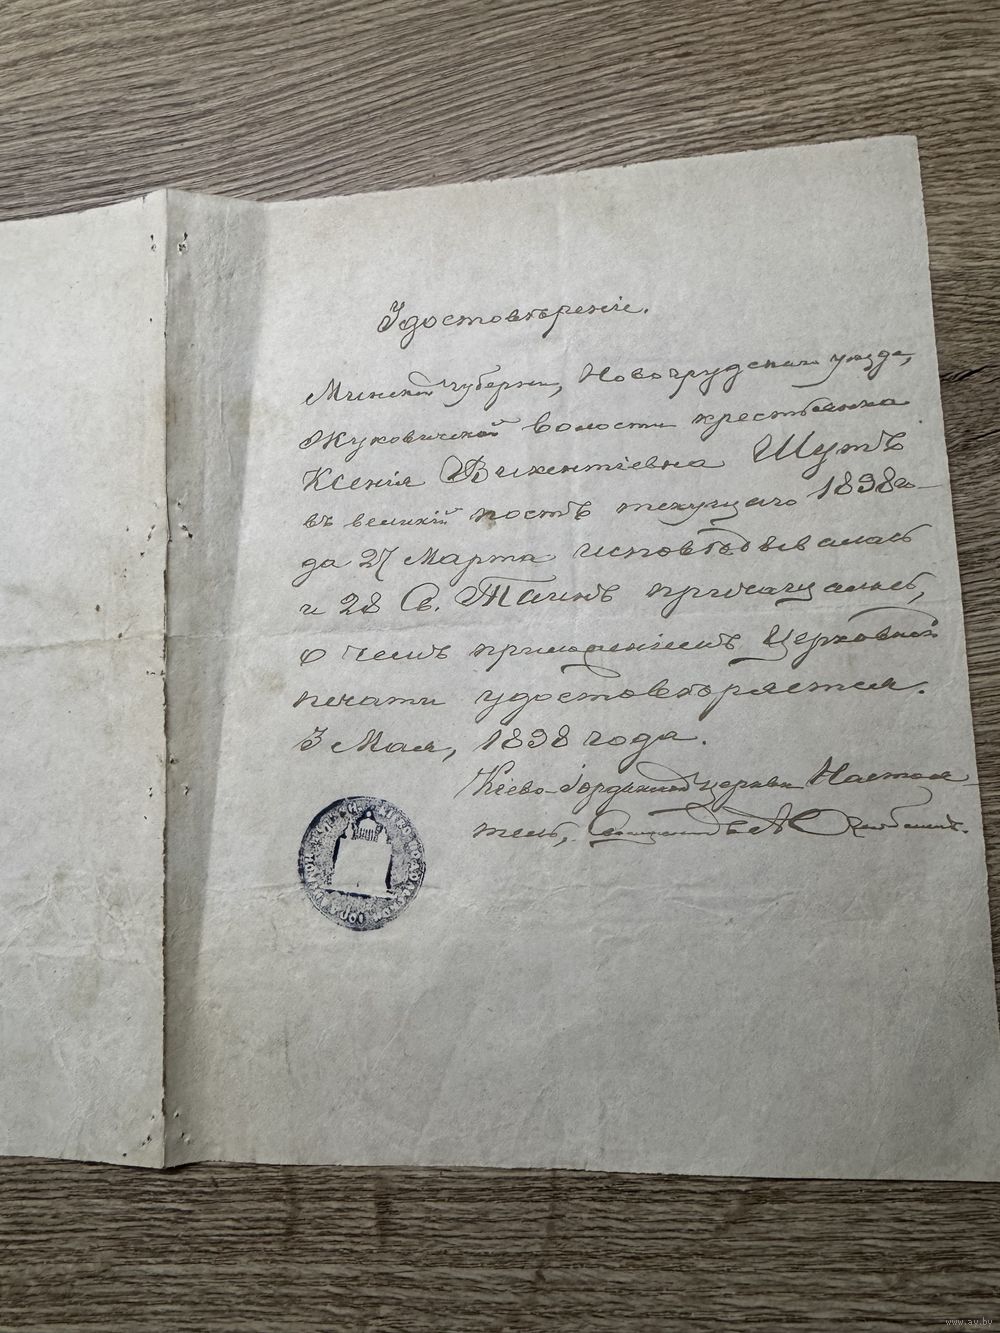 Удостовѣреніе.
Минской губерніи, Новогрудскаго уѣзда,
Жуковичской волости крестьянка
Ксенія Викентіевна Шутъ
въ великій постъ текущаго 1898 го-
да 27 Марта исповѣдывалась
и 28 Св. Таинъ пріобщалась,
о чемъ приложеніемъ церковной
печати удостовѣряется.
3 Мая, 1898 года.
Кіево-Іорданской церкви Настоя-
тель, Священникъ
www.ay.by